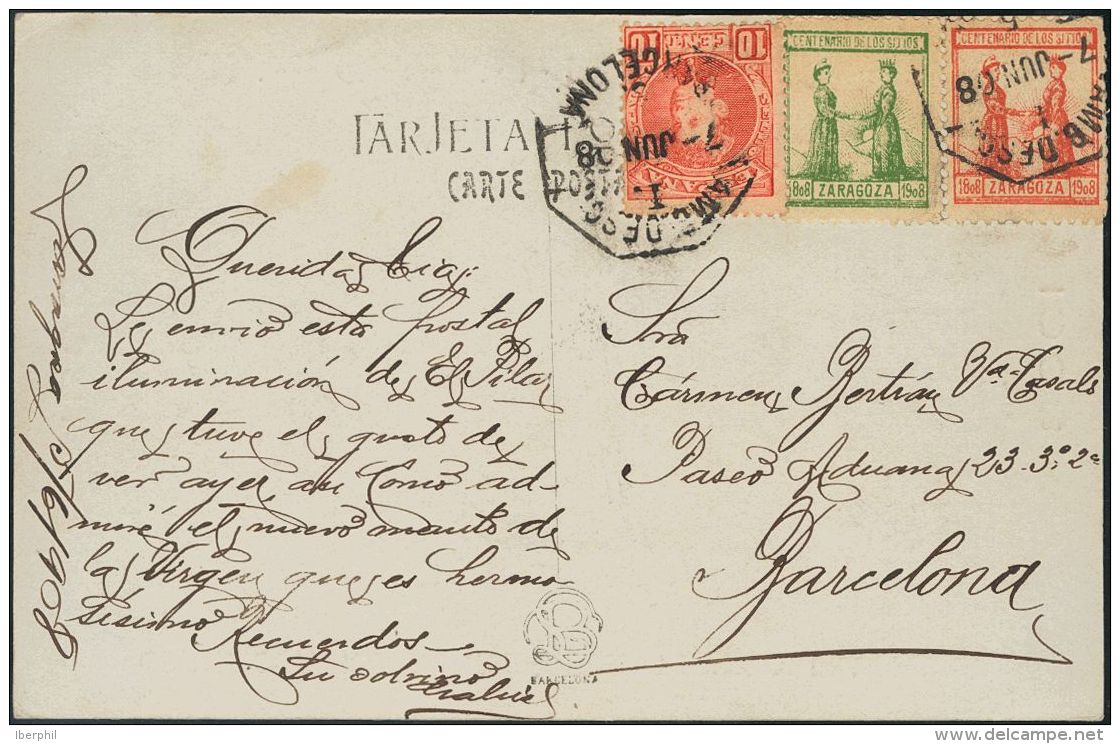 TARJETA
CARTE POSTALE
10 CENT. 10
CENTENARIO DE LOS SITIOS
1808 ZARAGOZA 1908
CENTENARIO DE LOS SITIOS
1808 ZARAGOZA 1908
AMB. DESC.
7 JUN 08
BARCELONA
AMB. DESC.
7 JUN 08
Zaragoza 6/6/908
Querida tia:
Le envio esta postal
iluminación de El Pilar
que tuve el gusto de
ver ayer, asi como ad-
miré el nuevo manto de
la Virgen que es hermo-
sísimo Recuerdos
Su sobrino
Sra
Cármen Bertrán Vda Casals
Paseo Aduana 23-3º-2ª
Barcelona
BARCELONA
Iberphil
delcampe.net